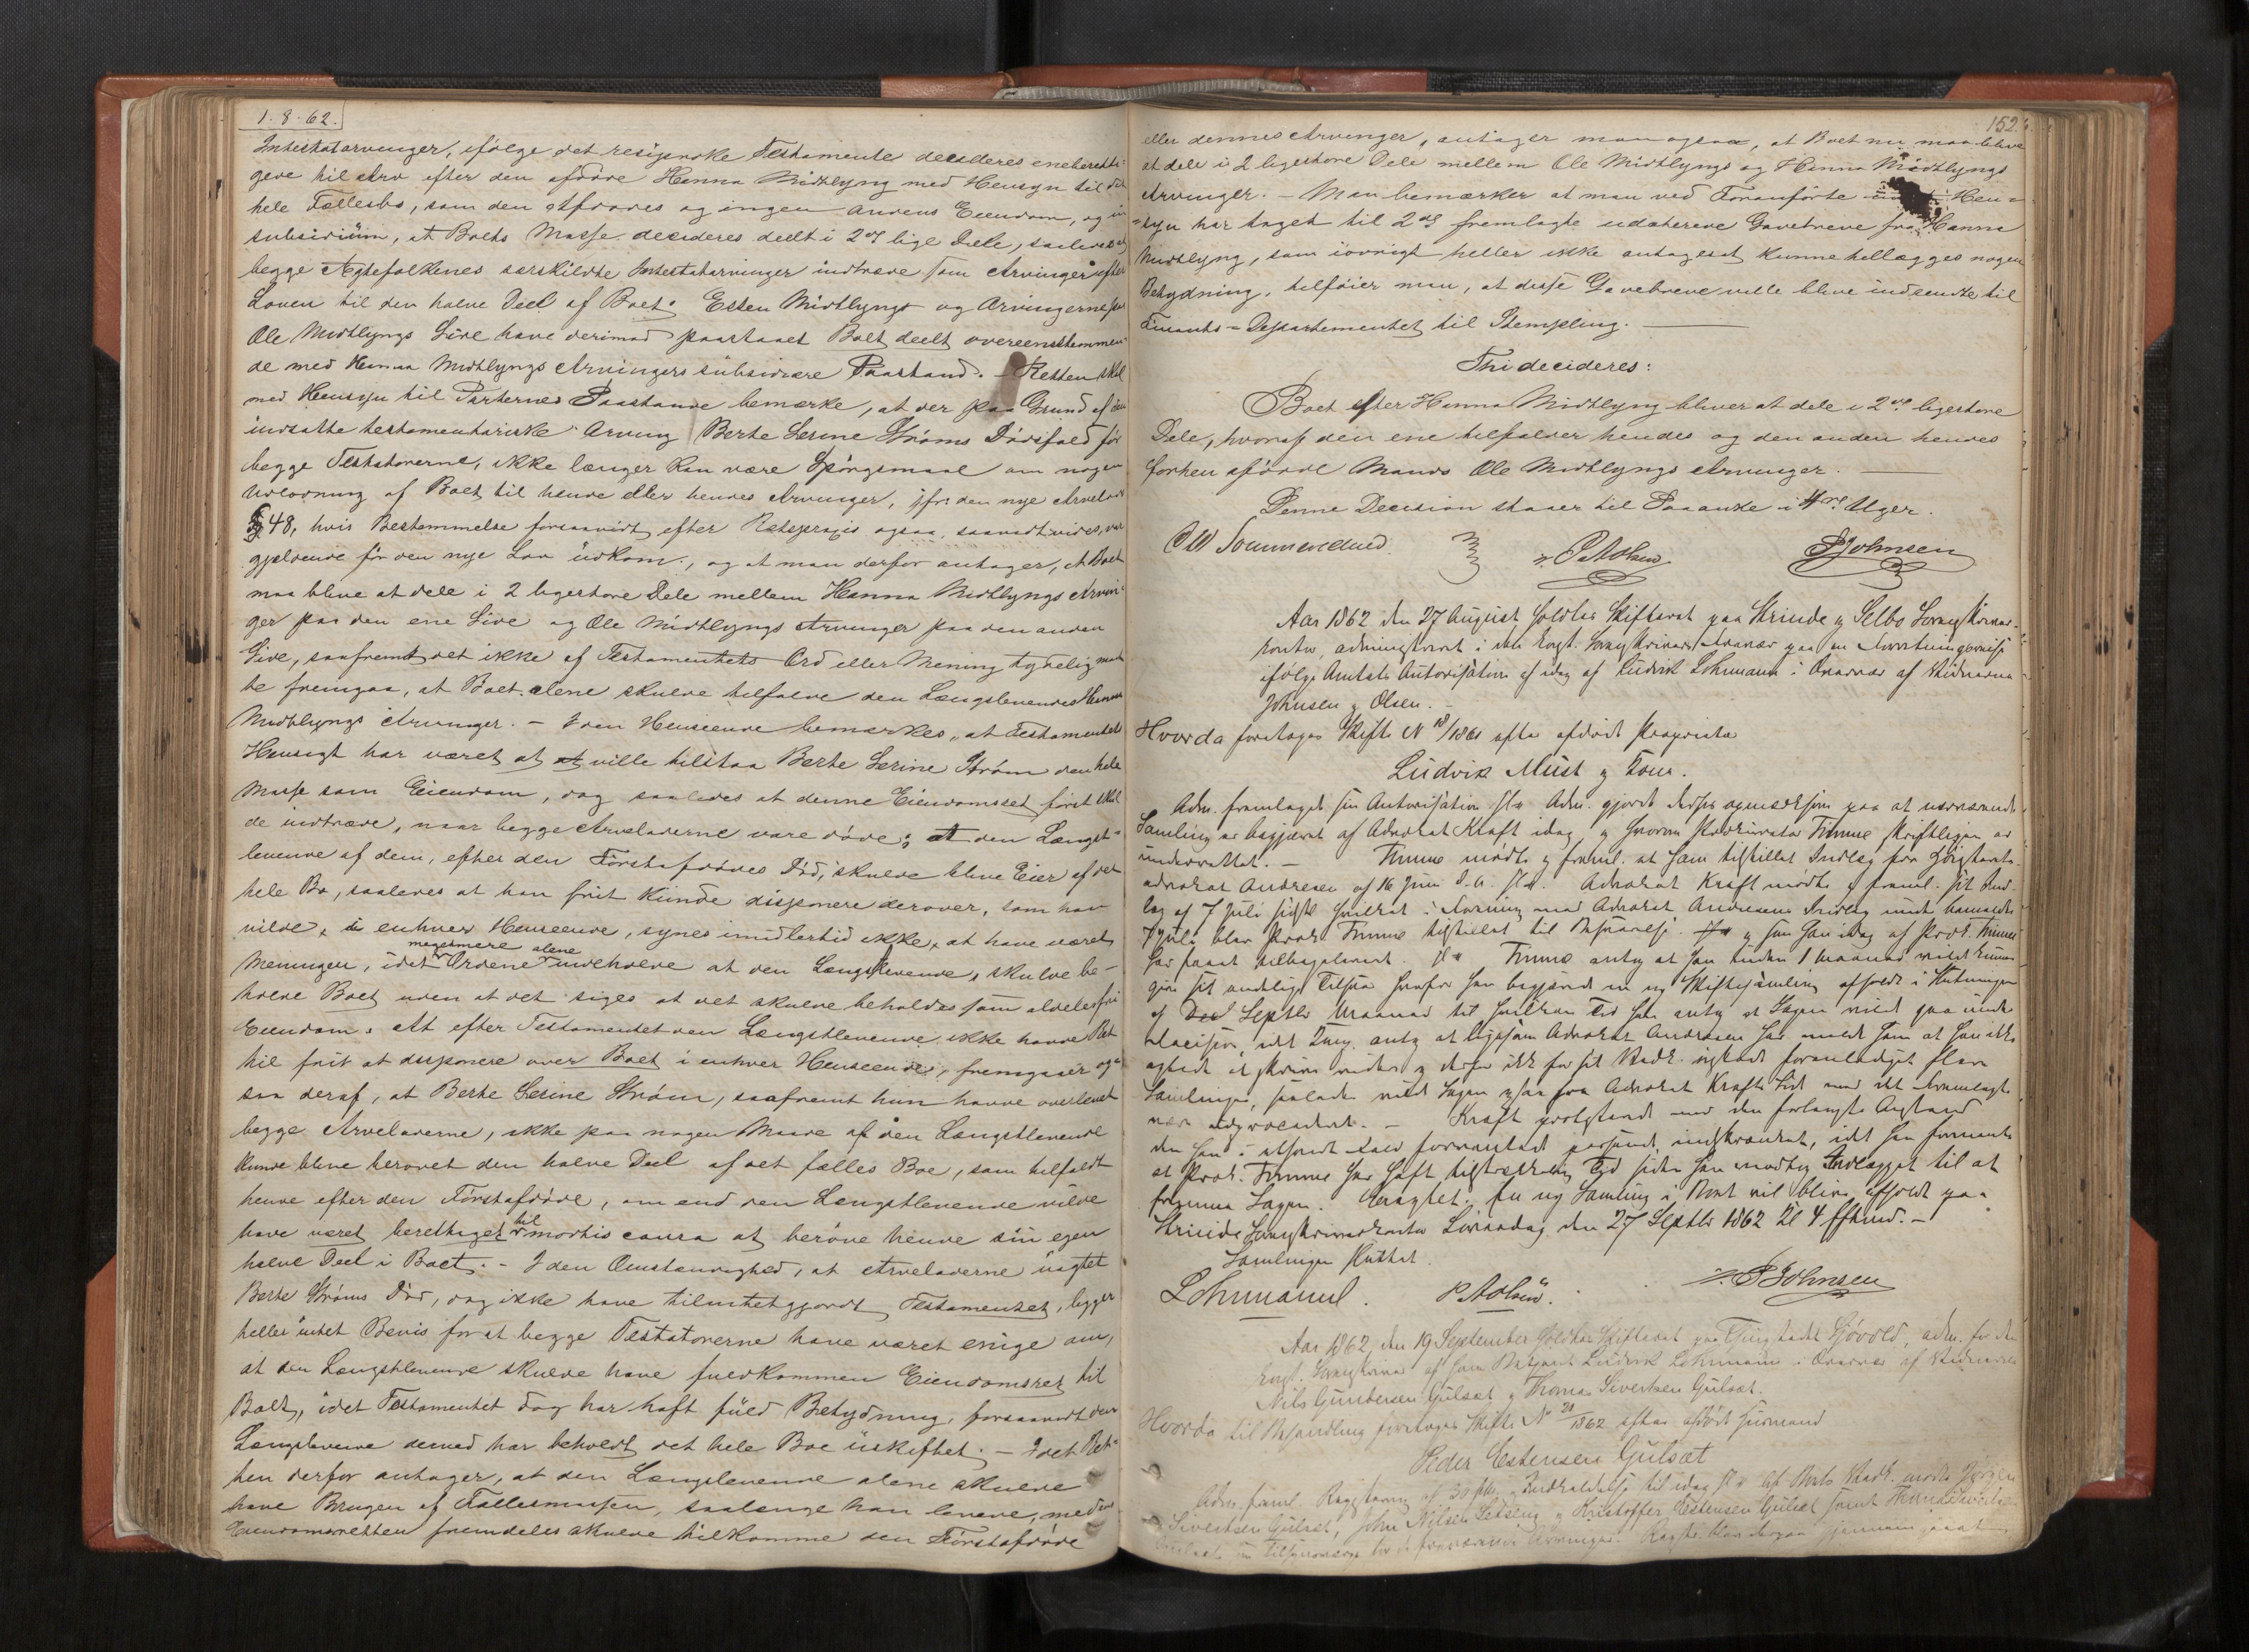 1.8.62.
Intestatarvinger, ifølge det resiproke Testamente decideres eneberetti=
gede til Arv efter den afdøde Hanna Midtlyng med Hensyn til det
hele Fællesbo, som den Afdødes og ingen Andens Eiendom, og in
subsidium, at Boets Masse decideres deelt i 2de lige Dele, saaledes at
begge Ægtefolkenes særskildte Intestatarvinger indtræde som Arvinger efter
Loven til den halve Deel af Boet. Esten Midtlyngs og Arvingerne paa
Ole Midtlyngs Side have derimod paastaaet Boet deelt overeensstemmen=
de med Hanna Midtlyngs Arvingers subsidiære Paastand. – Retten skal
med Hensyn til Parternes Paastande bemærke, at der paa Grund af den
indsatte testamentariske Arving Berte Serine Strøms Dødsfald før
begge Testatorerne, ikke længer kan være Spørgsmaal om nogen
Udlodning af Boet til hende eller hendes Arvinger, jfr: den nye Arvelovs
§ 48, hvis Bestemmelse forsaavidt efter Retspraxis ogsaa, saavidt vides, var
gjældende før den nye Lov udkom, og at man derfor antager, at Boet
maa blive at dele i 2 ligestore Dele mellem Hanna Midtlyngs Arvin=
ger paa den ene Side og Ole Midtlyngs Arvinger paa den anden
Side, saafremt det ikke af Testamentets Ord eller Mening tydelig maat=
te fremgaa, at Boet alene skulde tilfalde den Længstlevendes Hanna
Midtlyngs Arvinger. – I den Henseende bemærkes, at Testamentets
Hensigt har været at at ville tilstaa Berte Serine Strøm den hele
Masse som Eiendom, dog saaledes at denne Eiendomsret først skul
de indtræde, naar begge Arveladerne vare døde; at den Længst=
levende af dem, efter den Førstafdødes Død, skulde blive Eier af det
hele Bo, saaledes at han frit kunde disponere derover, som han
vilde, i enhver Henseende, synes imidlertid ikke, at have været
Meningen, idet Ordene megetmere alene indeholde at den Længstlevende, skulde be=
holde Boet uden at det siges at det skulde beholdes som aldeles fri
Eiendom. At efter Testamentet den Længstlevende ikke havde Ret
til frit at disponere over Boet i enhver Henseende, fremgaaer og=
saa deraf, at Berte Serine Strøm, saafremt hun havde overlevet
begge Arveladerne, ikke paa nogen Maade af den Længstlevende
kunde blive berøvet den halve Deel af det fælles Boe, som tilfaldt
hende efter den Førstafdøde, om end den Længstlevende vilde
have været berettiget til mortis causa at berøve hende sin egen
halve Deel i Boet. – I den Omstændighed, at Arveladerne uagtet
Berte Strøms Død, dog ikke have tilintetgjordt Testamentet, ligger
heller intet Bevis for at begge Testatorerne have været enige om,
at den Længstlevende skulde have fuldkommen Eiendomsret til
Boet, idet Testamentet dog har haft fuld Betydning, forsaavidt den
Længstlevende derved har beholdt det hele Boe uskiftet. – Idet Ret=
ten derfor antager, at den Længstlevende alene skulde
have Brugen af Fællesmassen, saalænge han levede, medens
Eiendomsretten fremdeles skulde tilkomme den Førstafdøde
152.
eller dennes Arvinger, antager man ogsaa, at Boet nu maa blive
at dele i 2 ligestore Dele mellem Ole Midtlyngs og Hanna Midtlyngs
Arvinger. – Man bemærker at man ved Foranførte Hen=
=syn har taget til 2de fremlagte udaterede Gavebreve fra Hanna
Midtlyng, som iøvrigt heller ikke antages at kunne tillægges nogen
Betydning, tilføier man, at disse Gavebreve ville blive indsendte til
Finants=Departementet til Stempling.
Thi decideres:
Boet efter Hanna Midtlyng bliver at dele i 2de ligestore
Dele, hvoraf den ene tilfalder hendes og den anden hendes
forhen afdøde Mands Ole Midtlyngs Arvinger.
Denne Decision staaer til Paaanke i 4re Uger.
P. A. Olsen P Johnsen
Aar 1862 den 27 August holdtes Skifteret paa Strinde og Selbo Sorenskriver=
kontor, administreret i den Const. Sorenskrivers Fravær paa en Forretningsreise
ifølge Amtets Autorisation af idag af Ludvik Lehmann i Overvær af Vidnerne
Johnsen og Olsen. –
Hvorda foretages Skifte N 18/1861 efter afdøde Proprietær
Ludvik Must og Kone.
Adm. fremlagde sin Autorisation Adm. gjorde derhos opmerksom paa at nærværende
Samling er begjæret af Advokat Kraft idag og hvorom Prokurator Timme skriftligen er
underrettet. – Timme mødte og freml. et ham tilstillet Indlæg fra Høiesterets=
advokat Andresen af 16 Juni d. A. Advokat Kraft mødte og freml. sit Ind=
læg af 7 Juli sidstl. hvilket i Forening med Advokat Andresens Indlæg under bemeldte
7 Juli blev Prok. Timme tilstillet til Besvarelse og som han idag af Prok. Timme
har faaet tilbageleveret. Timme antog at han inden 1 Maaned vilde kunne
give sit endelige Tilsvar hvorfor han begjærede en ny Skiftesamling afholdt i Slutningen
af Septbr Maaned til hvilken Tid han antog at Sagen vilde gaa under
Decision, idet Comp. antog at ligesom Advokat Andresen har meldt ham at han ikke
agtede at skrive videre og derfor ikke for sit Vedk. ønskede foranlediget flere
Samlinger, saaledes vilde Sagen ogsaa fra Advokat Krafts Side med det Fremlagte
være udproceduret. – Kraft protesterede mod den forlangte Anstand
den han i ethvert Fald formentlig indskrænket, idet han formente
at Prok. Timme har haft tilstrækkelig Tid siden han modtog Indlægget til at
fremme Sagen. Eragtet: En ny Samling i Boet vil blive afholdt paa
Strinde Sorenskriverkontor Løverdag den 27 Septbr 1862 Kl 4 Efterm. –
Samlingen sluttet.
Lehmann. P A Olsen. P Johnsen
Aar 1862 den 19 September holdtes Skifteret paa Thingstedet Sjøvold, adm. for den
const. Sorenskriver af hans Betjent Ludvik Lehmann i Overvær af Vidnerne
Nils Gundersen Gulset og Thomas Sivertsen Gulset.
Hvorda til Behandling foretages Skifte N 21/1862 efter afdøde Huusmand
Peder Estensen Gulsæt
Adm. freml. Registrering af 30 og Indkaldelse til idag Af Boets Vedk. mødte Jørgen
Sivertsen Gulset, John Nilsen Setseng og Kristoffer Estensen Gulset samt